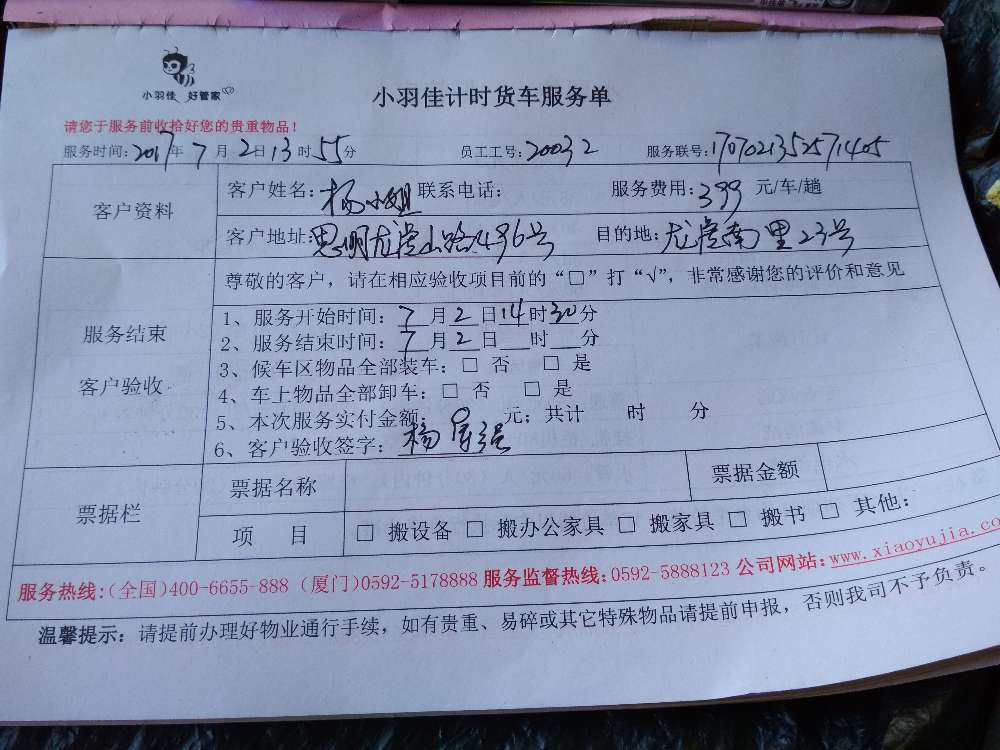 小羽佳 好管家
小羽佳计时货车服务单
请您于服务前收拾好您的贵重物品！
服务时间：2017年 7月 2日 13时 55分 员工工号：20032 服务联号：1707021352571405
客户资料
客户姓名：杨小姐 联系电话： 服务费用：399 元/车/趟
客户地址：思明龙虎山路496号 目的地：龙虎南里23号
服务结束
客户验收
尊敬的客户，请在相应验收项目前的“□”打“√”，非常感谢您的评价和意见
1、服务开始时间：7月2日14时30分
2、服务结束时间：7月2日 时 分
3、候车区物品全部装车：□ 否 □ 是
4、车上物品全部卸车：□ 否 □ 是
5、本次服务实付金额： 元；共计 时 分
6、客户验收签字：杨
票据栏
票据名称 票据金额
项 目 □ 搬设备 □ 搬办公家具 □ 搬家具 □ 搬书 □ 其他：
服务热线：(全国)400-6655-888 (厦门)0592-5178888 服务监督热线：0592-5888123 公司网站：www.xiaoyujia.co
温馨提示：请提前办理好物业通行手续，如有贵重、易碎或其它特殊物品请提前申报，否则我司不予负责。